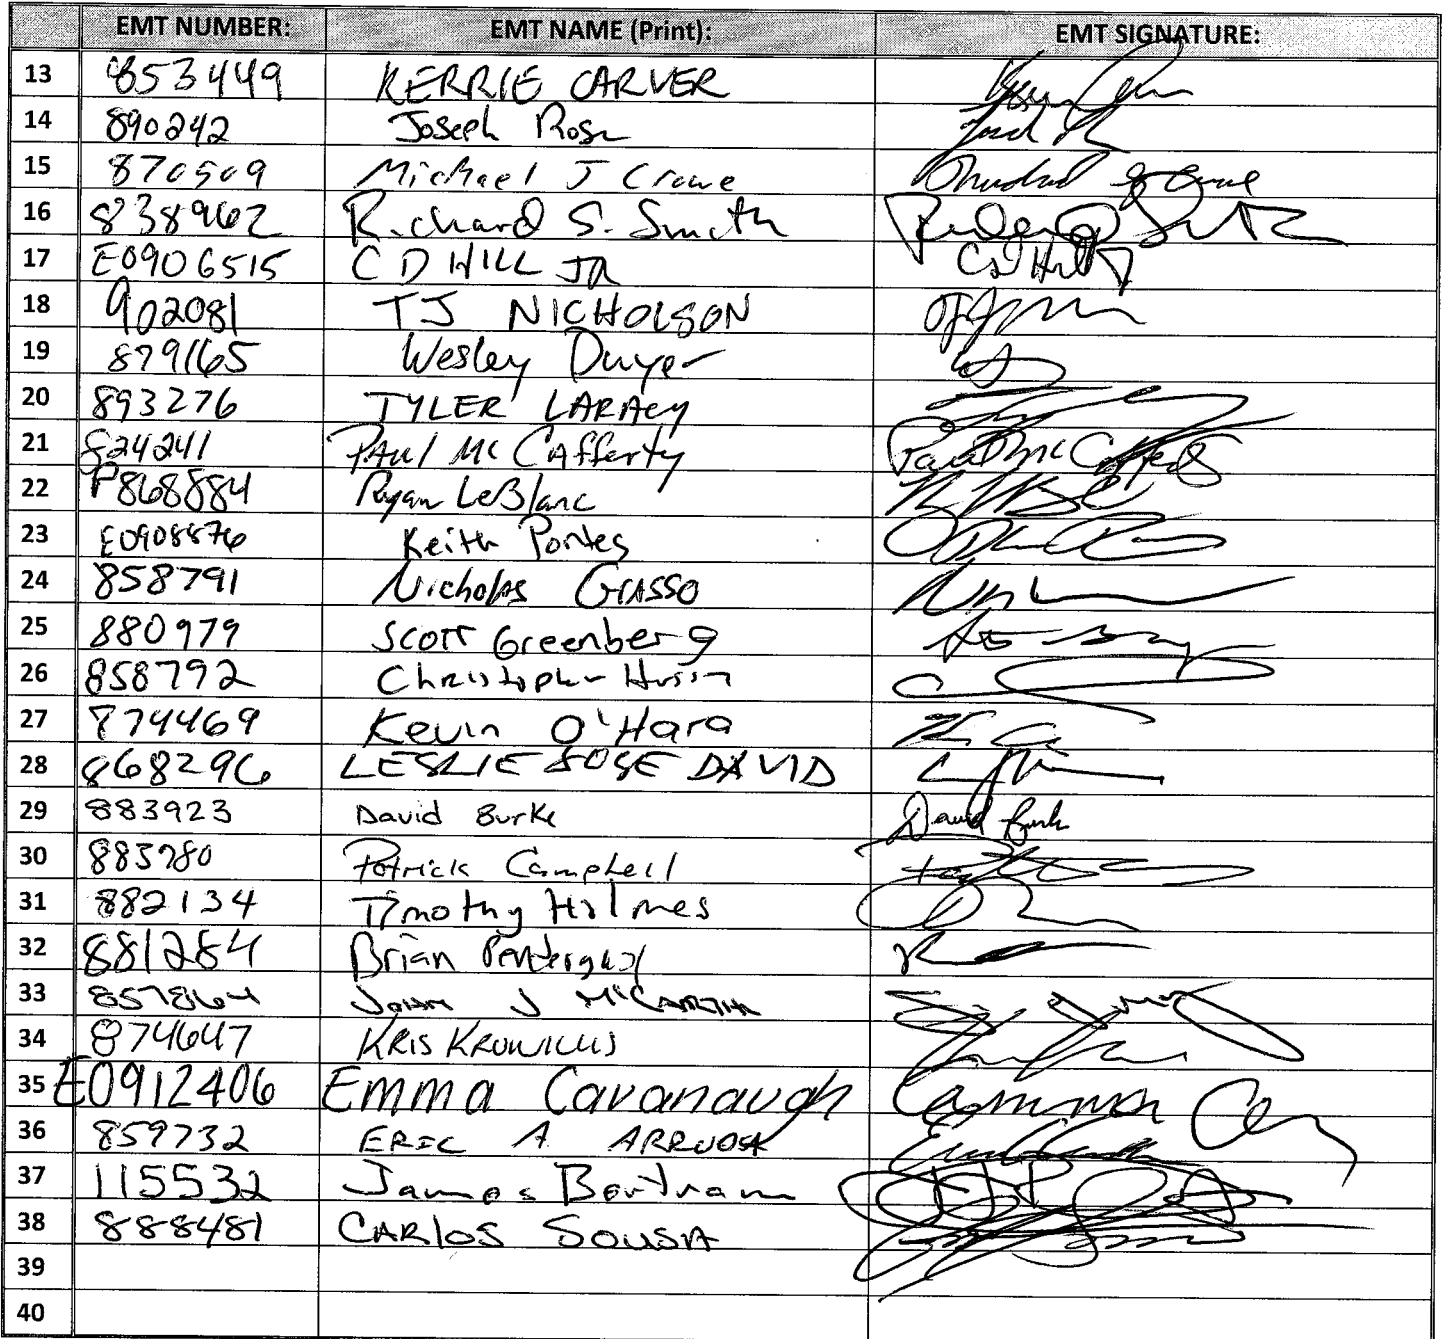 EMT NUMBER: EMT NAME (Print): EMT SIGNATURE:
13 853449 KERRIE CARVER
14 890242 Joseph Rosa
15 870509 Michael J Crowe
16 838962 Richard S. Smith
17 E0906515 C D HILL JR CD Hill Jr
18 902081 TJ NICHOLSON
19 879165 Wesley Dwyer
20 893276 TYLER LARACY
21 824241 PAUL McCafferty Paul McCafferty
22 P868884 Ryan LeBlanc
23 E0908876 Keith Pontes
24 858791 Nicholas GRASSO
25 880979 SCOTT Greenberg
26 858792 Christopher
27 774469 Kevin O'Hara
28 868296 LESLIE JOSE DAVID
29 883923 David Burke David Burke
30 883780 Patrick Campbell
31 882134 Timothy Holmes
32 881284 Brian
33 857864 JOHN J
34 874647 KRIS
35 E0912406 Emma Cavanaugh
36 859732 ERIC A ARRUDA
37 115532 James Bertram
38 888481 CARlOS SOUSA
39
40